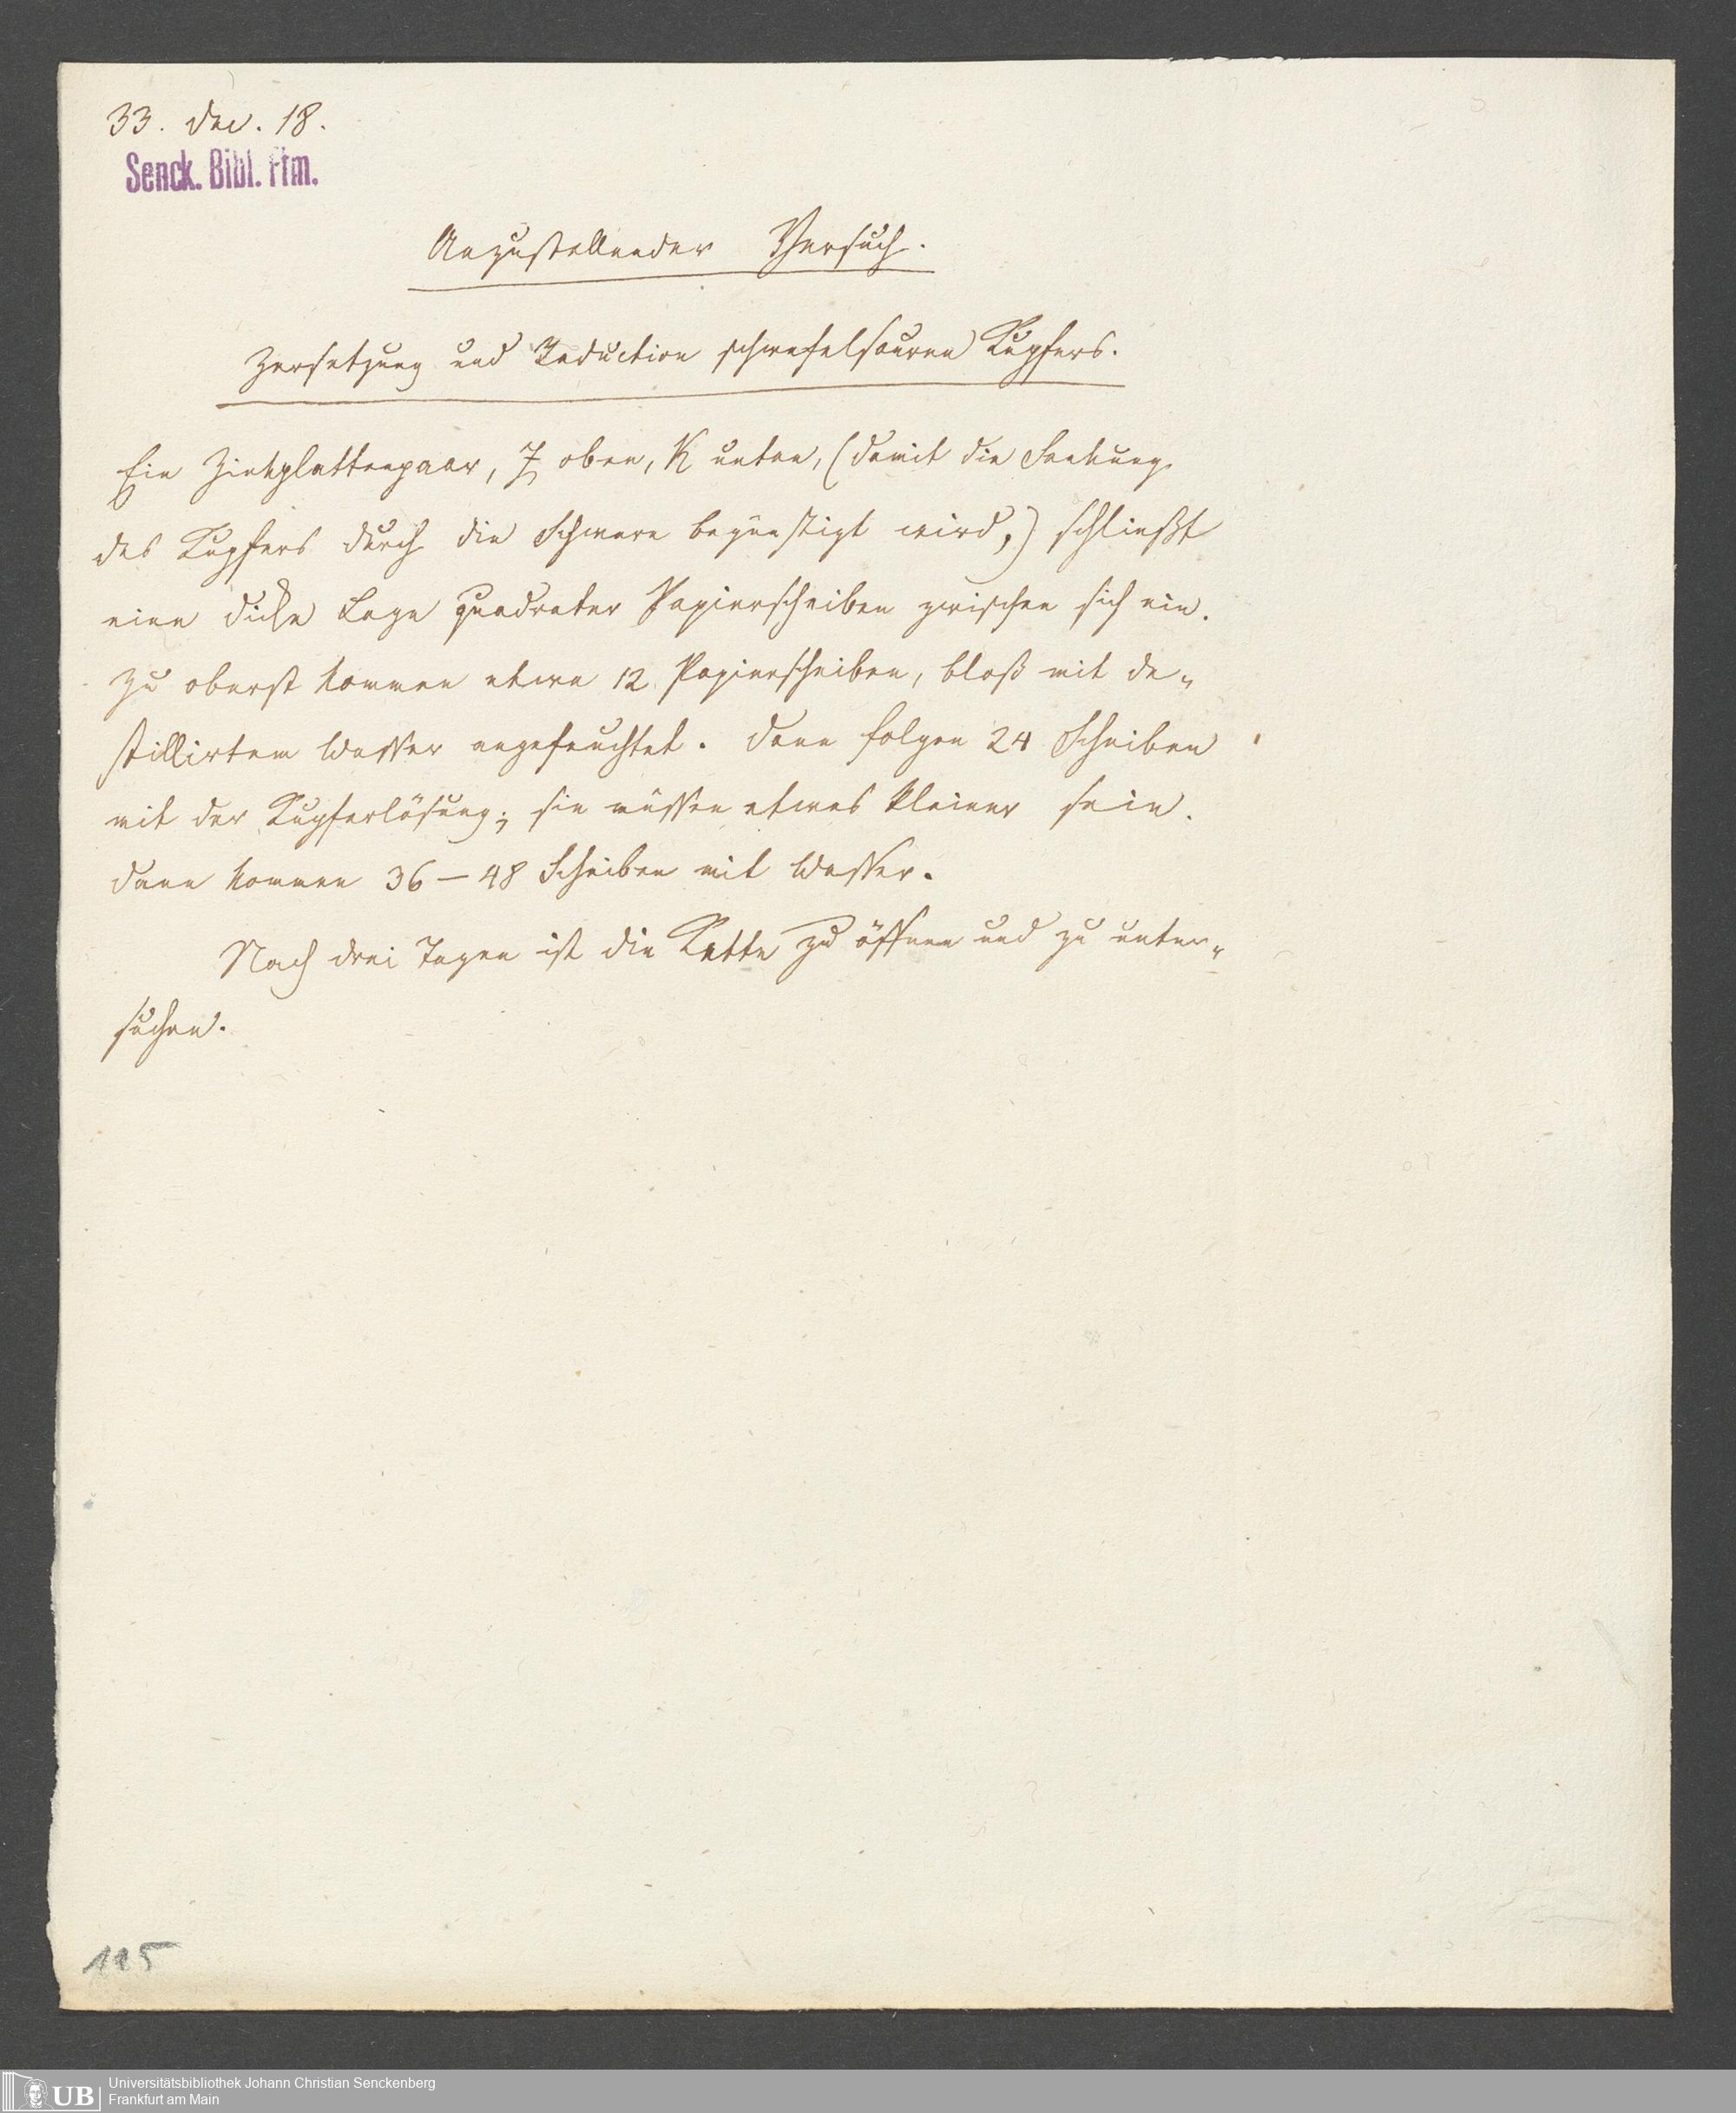 33. Dec. 18.
Senck. Bibl. Ffm.
Anzustellender Versuch.
Zersetzung und Reduction schwefelsauren Kupfers.
Ein Zinkplattenpaar, Z oben, K unten, (damit die Senkung
des Kupfers durch die Schwere begünstigt wird,) schließt
eine dicke Lage quadrater Papierscheiben zwischen sich ein.
Zu oberst kommen etwa 12 Papierscheiben, bloß mit de„
stillirtem Wasser angefeuchtet. Dann folgen 24 Scheiben
mit der Kupferlösung; sie müssen etwas kleiner sein.
Dann kommen 36–48 Scheiben mit Wasser.
Nach drei Tagen ist die Kette zu öffnen und zu unter„
suchen.
115
UB
Universitätsbibliothek Johann Christian Senckenberg
Frankfurt am Main